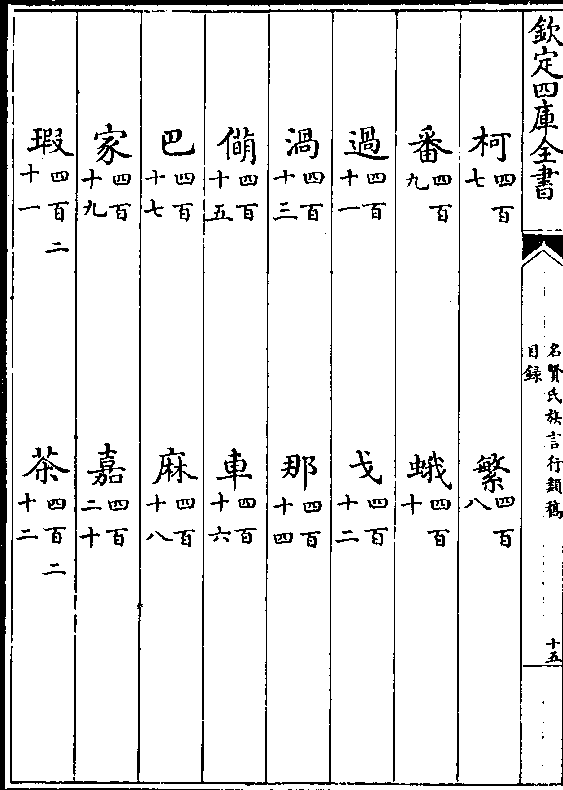 欽定四庫全書
名賢氏族言行類稿
目録
十五
柯四百七 繁四百八
番四百九 蛾四百十
過四百十一 戈四百十二
渦四百十三 那四百十四
四百十五 車四百十六
巴四百十七 麻四百十八
家四百十九 嘉四百二十
瑕四百二十一 茶四百二十二